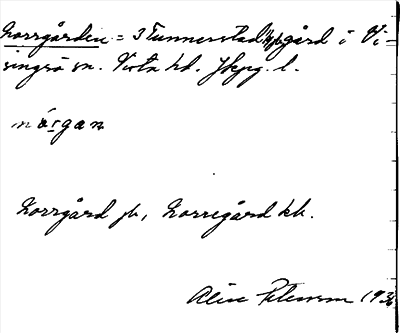 Norrgården = 3 Tunnerstad gård i Vi-
singsö sn. Vista hd. Jkpg. l.
nórgan
Norrgård jb, Norregård kk.
Alice Petersson 193